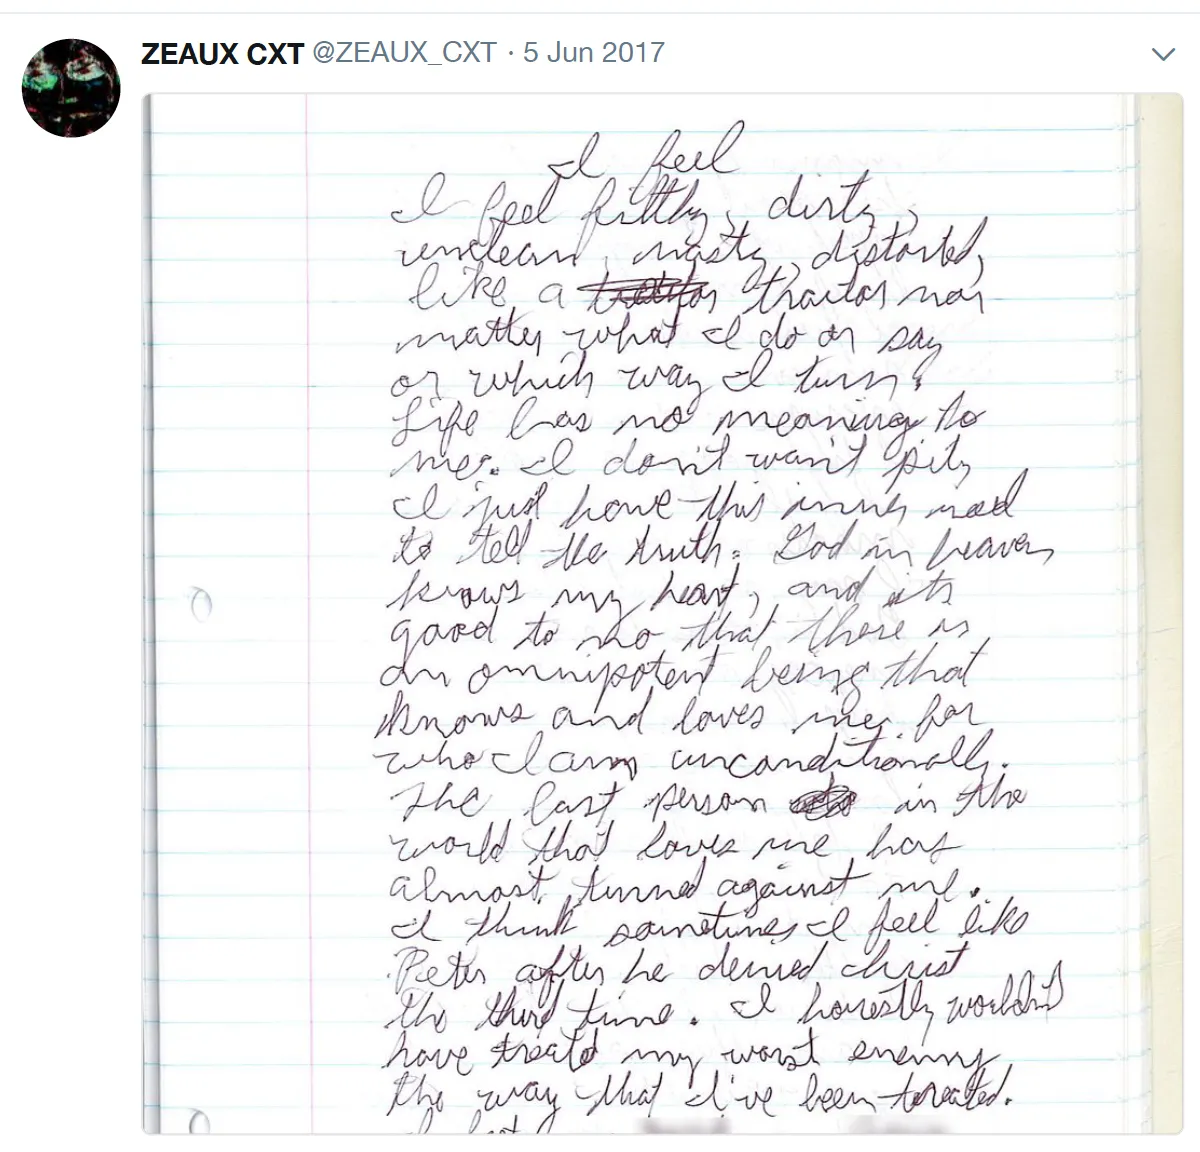 ZEAUX CXT @ZEAUX_CXT · 5 Jun 2017
I feel
I feel filthy, dirty,
unclean, nasty, distorted,
like a traitor nor
matter what I do or say
or which way I turn.
Life has no meaning to
me. I don't want pity
I just have this inner need
to tell the truth. God in heaven
knows my heart, and its
good to no that there is
an omnipotent being that
knows and loves me for
who I am unconditionally.
The last person in the
world that loves me has
almost turned against me.
I think sometimes I feel like
Peter after he denied christ
the third time. I honestly wouldn't
have treated my worst enemy
the way that I've been treated.